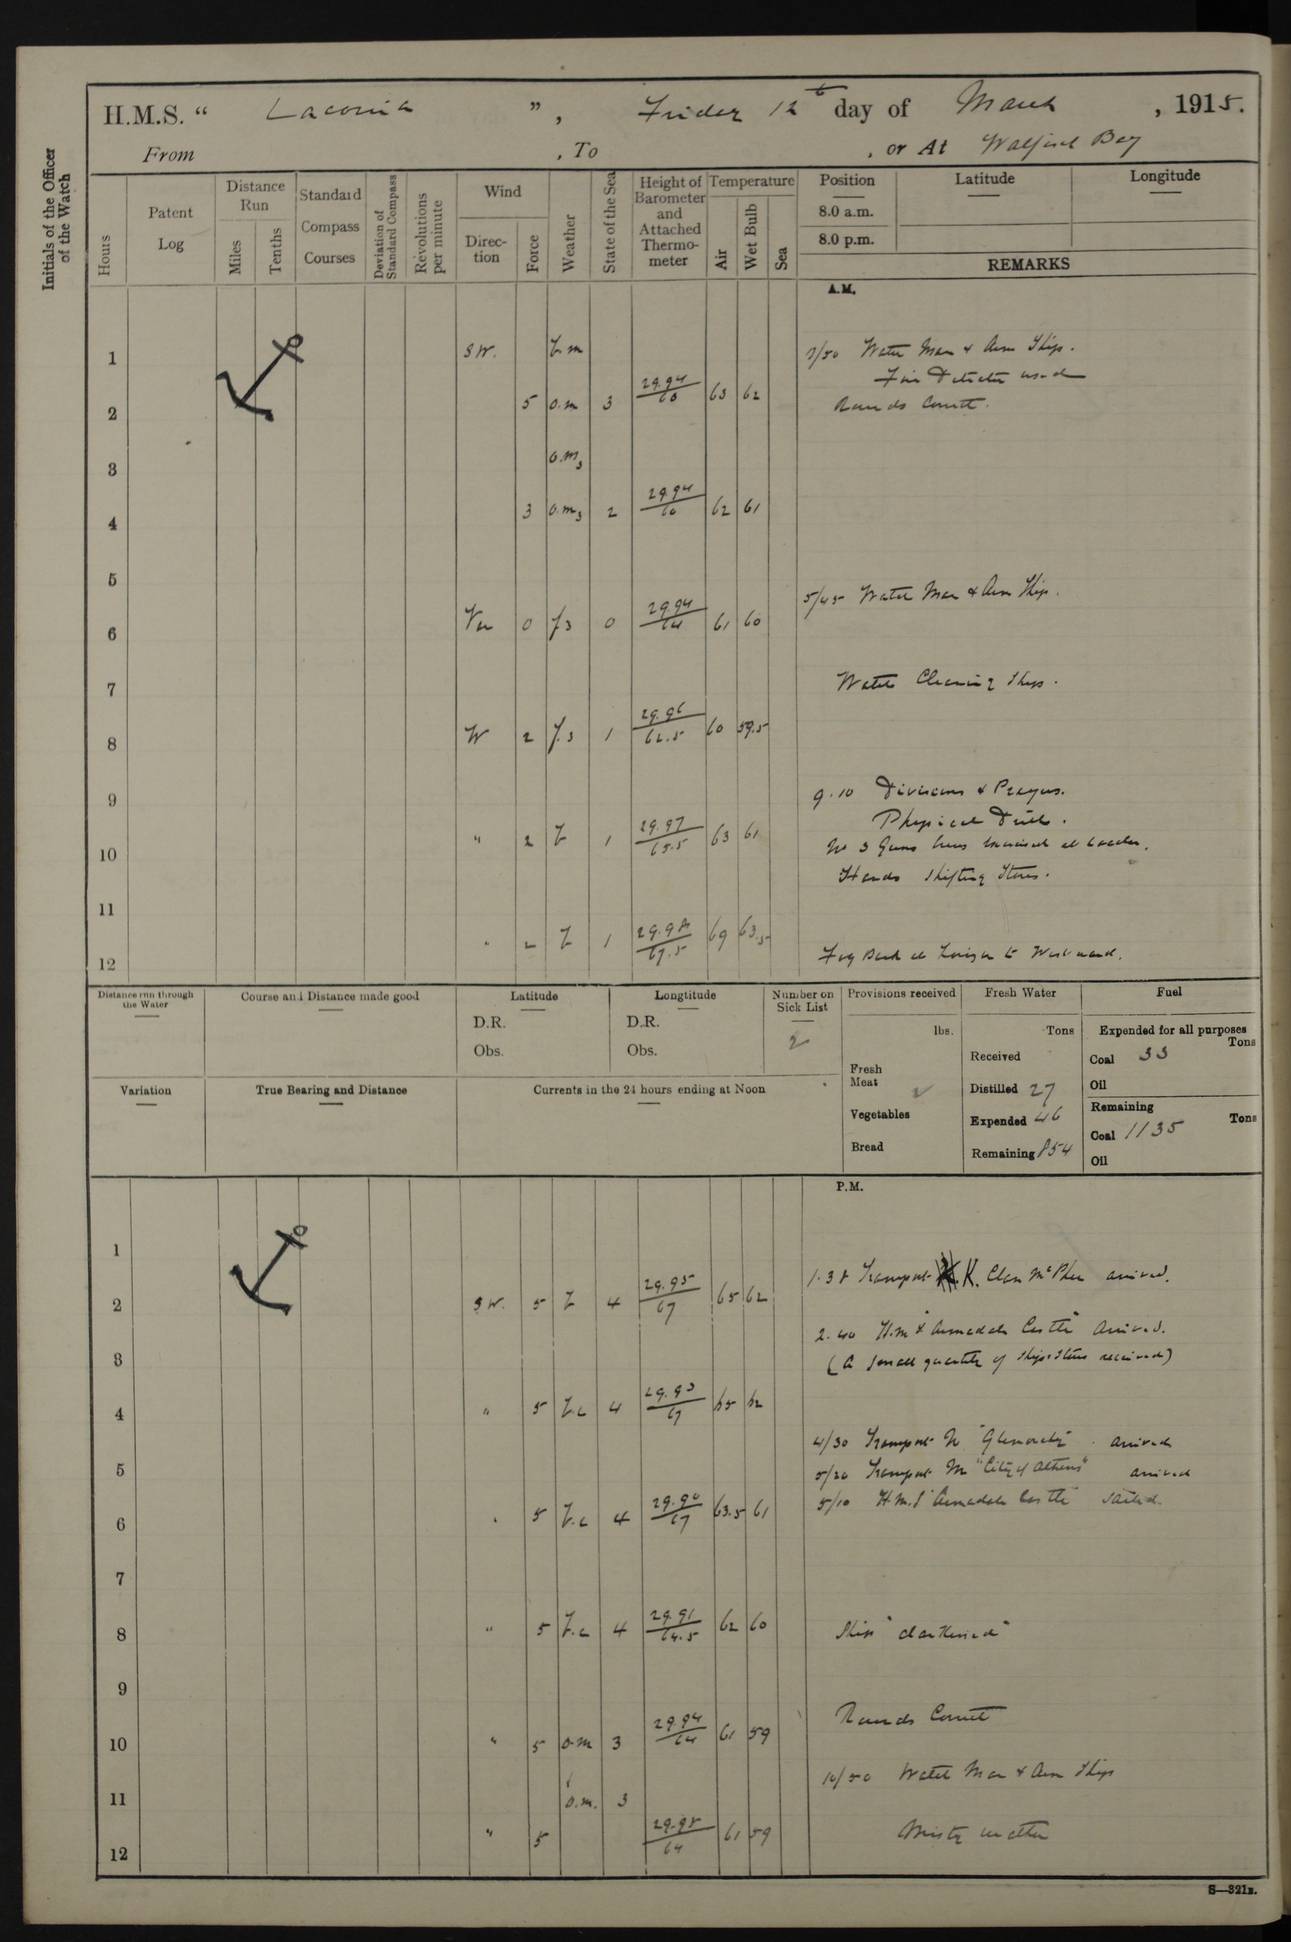 H.M.S. " Laconia ", Friday 12th day of March, 1915.
From , To , or At Walfisch Bay
Initials of the Officer of the Watch
Hours
Patent Log
Distance Run
Miles
Tenths
Standard Compass Courses
Deviation of Standard Compass
Revolutions per minute
Wind
Direc-tion
Force
Weather
State of the Sea
Height of Barometer and Attached Thermo-meter
Temperature
Air
Wet Bulb
Sea
Position
8.0 a.m.
8.0 p.m.
Latitude
Longitude
REMARKS
A.M.
1 SW. b.m 1/50 Watch Man & Arm Ship.
Fire Detector used
2 5 o.m 3 29.94/60 63 62 Rounds Correct.
3 o.m3
4 3 o.m3 2 29.94/60 62 61
5 5/45 Watch Man & Arm Ship.
6 Var 0 f3 0 29.94/64 61 60
7 Watch Cleaning Ship.
8 W 2 f.3 1 29.96/62.5 60 59.5
9 9.10 Divisions & Prayers.
Physical Drill.
10 " 2 b 1 29.97/65.5 63 61 No 3 Guns Crews Exercised at Loader.
Hands Shifting Stores.
11
12 " 2 b 1 29.98/67.5 69 63.5 Fog Bank at horizon to Westward.
Distance run through the Water
Course and Distance made good
Latitude
D.R.
Obs.
Longtitude
D.R.
Obs.
Number on Sick List
2
Provisions received
lbs.
Fresh Meat
Vegetables
Bread
Fresh Water
Tons
Received
Distilled 27
Expended 46
Remaining 854
Fuel
Expended for all purposes
Tons
Coal 33
Oil
Remaining
Tons
Coal 1135
Oil
Variation
True Bearing and Distance
Currents in the 24 hours ending at Noon
P.M.
1 1.38 Transport K. Clan McPhee arrived.
2 SW. 5 b 4 29.95/67 65 62
2.40 H.M.S "Armadale Castle" Arrived.
3 (A small quantity of Ships Stores received)
4 " 5 b.c 4 29.93/67 65 62
4/30 Transport N "Glenorchy" arrived
5 5/20 Transport M "City of Athens" arrived
5/10 H.M.S "Armadale Castle" sailed.
6 " 5 b.c 4 29.90/67 63.5 61
7
8 " 5 b.c 4 29.91/64.5 62 60 Ship "darkened"
9
10 " 5 o.m 3 29.94/64 61 59 Rounds Correct
10/50 Watch Man & Arm Ship
11 o.m. 3
12 " 5 29.95/64 61 59 Misty weather
S—321B.